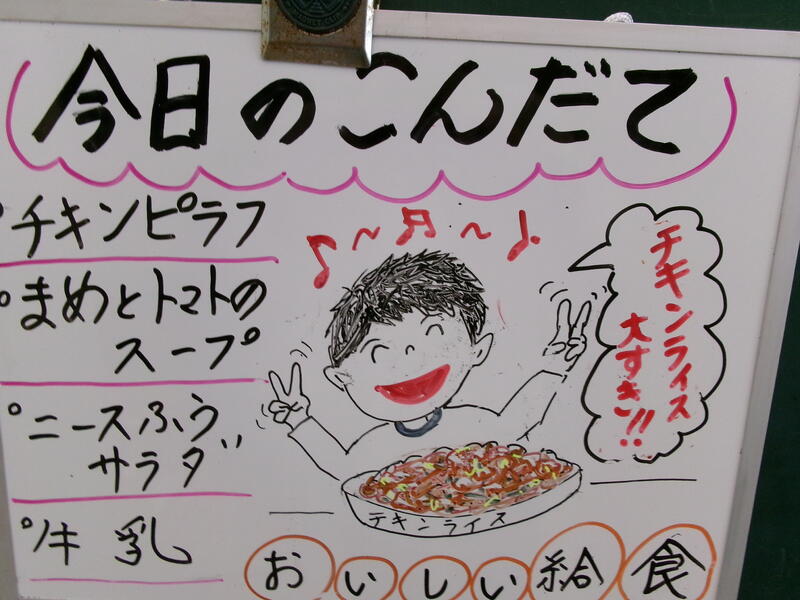 今日のこんだて
チキンピラフ
まめとトマトの
スープ
ニースふう
サラダ
牛乳
チキンライス
大すき!!
チキンライス
おいしい給食